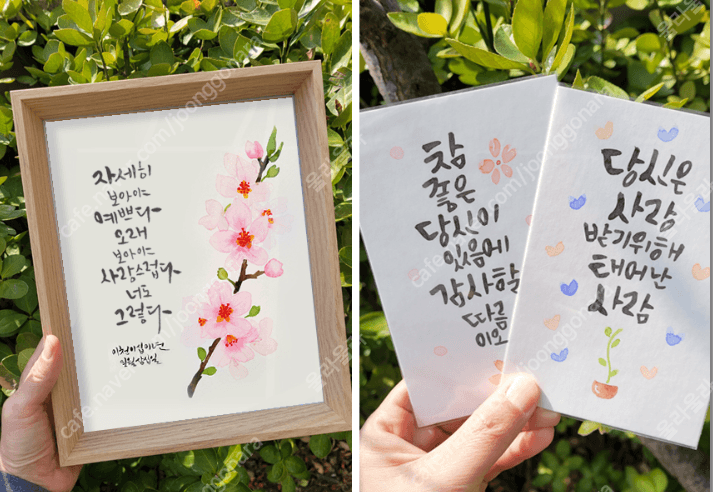 자세히
보아야
예쁘다
오래
보아야
사랑스럽다
너도
그렇다
참
좋은
당신이
있음에
감사할
따름
이오
당신은
사랑
받기위해
태어난
사람
cafe.naver.com/joonggonara